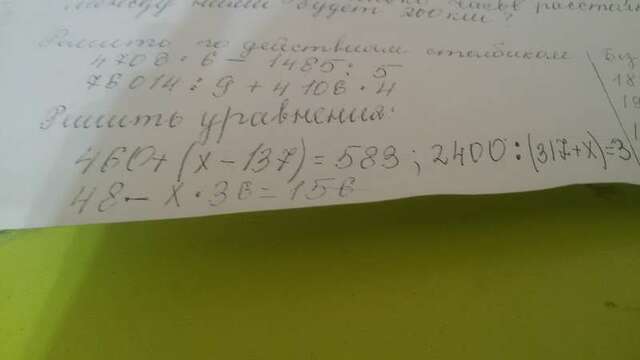 между ними будет 200 км?
Решить по действиям столбиком
4706 · 6 - 1485 : 5
76014 : 9 + 4106 · 4
Решить уравнения:
460 + (х - 137) = 583 ; 2400 : (317 + х) = 3
48 - х · 36 = 156
18
19